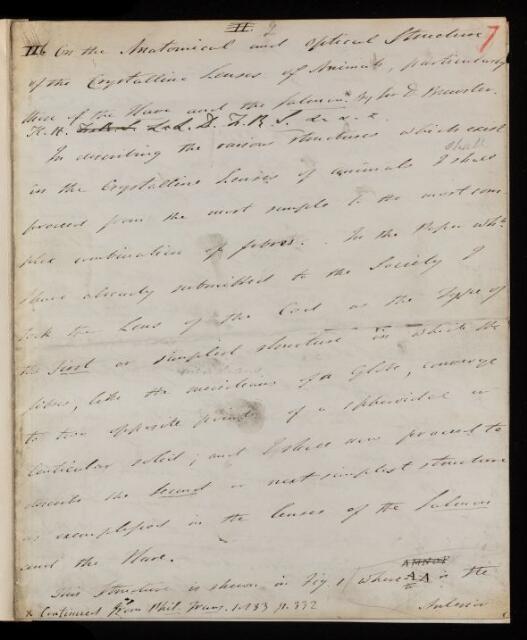 II. 9
7
III6 On the Anatomical and Optical Structure
of the Crystalline Lenses of Animals, particularly
those of the Hare and the Salmon. By Sir D. Brewster.
K. H. L.L. D. F. R. S. &c. &c.
In describing the various structures which exist
shall
in the Crystalline Lenses of animals I shall
proceed from the most simple to the most com-
plex combination of fibres. In the Paper whh
I have already submitted to the Society I
took the Lens of the Cod as the type of
the first or simplest structure in which the
fibres, like the meridians of a Globe, converge
to two opposite points of a spheroidal or
lenticular solid; and I shall now proceed to
describe the second or next simplest structure
as exemplified in the lenses of the Salmon
and the Hare.
AMNOP
This structure is shewn in Fig. 1, where AA is the
x Continued from Phil. Trans. 1833 p. 332
Anterior